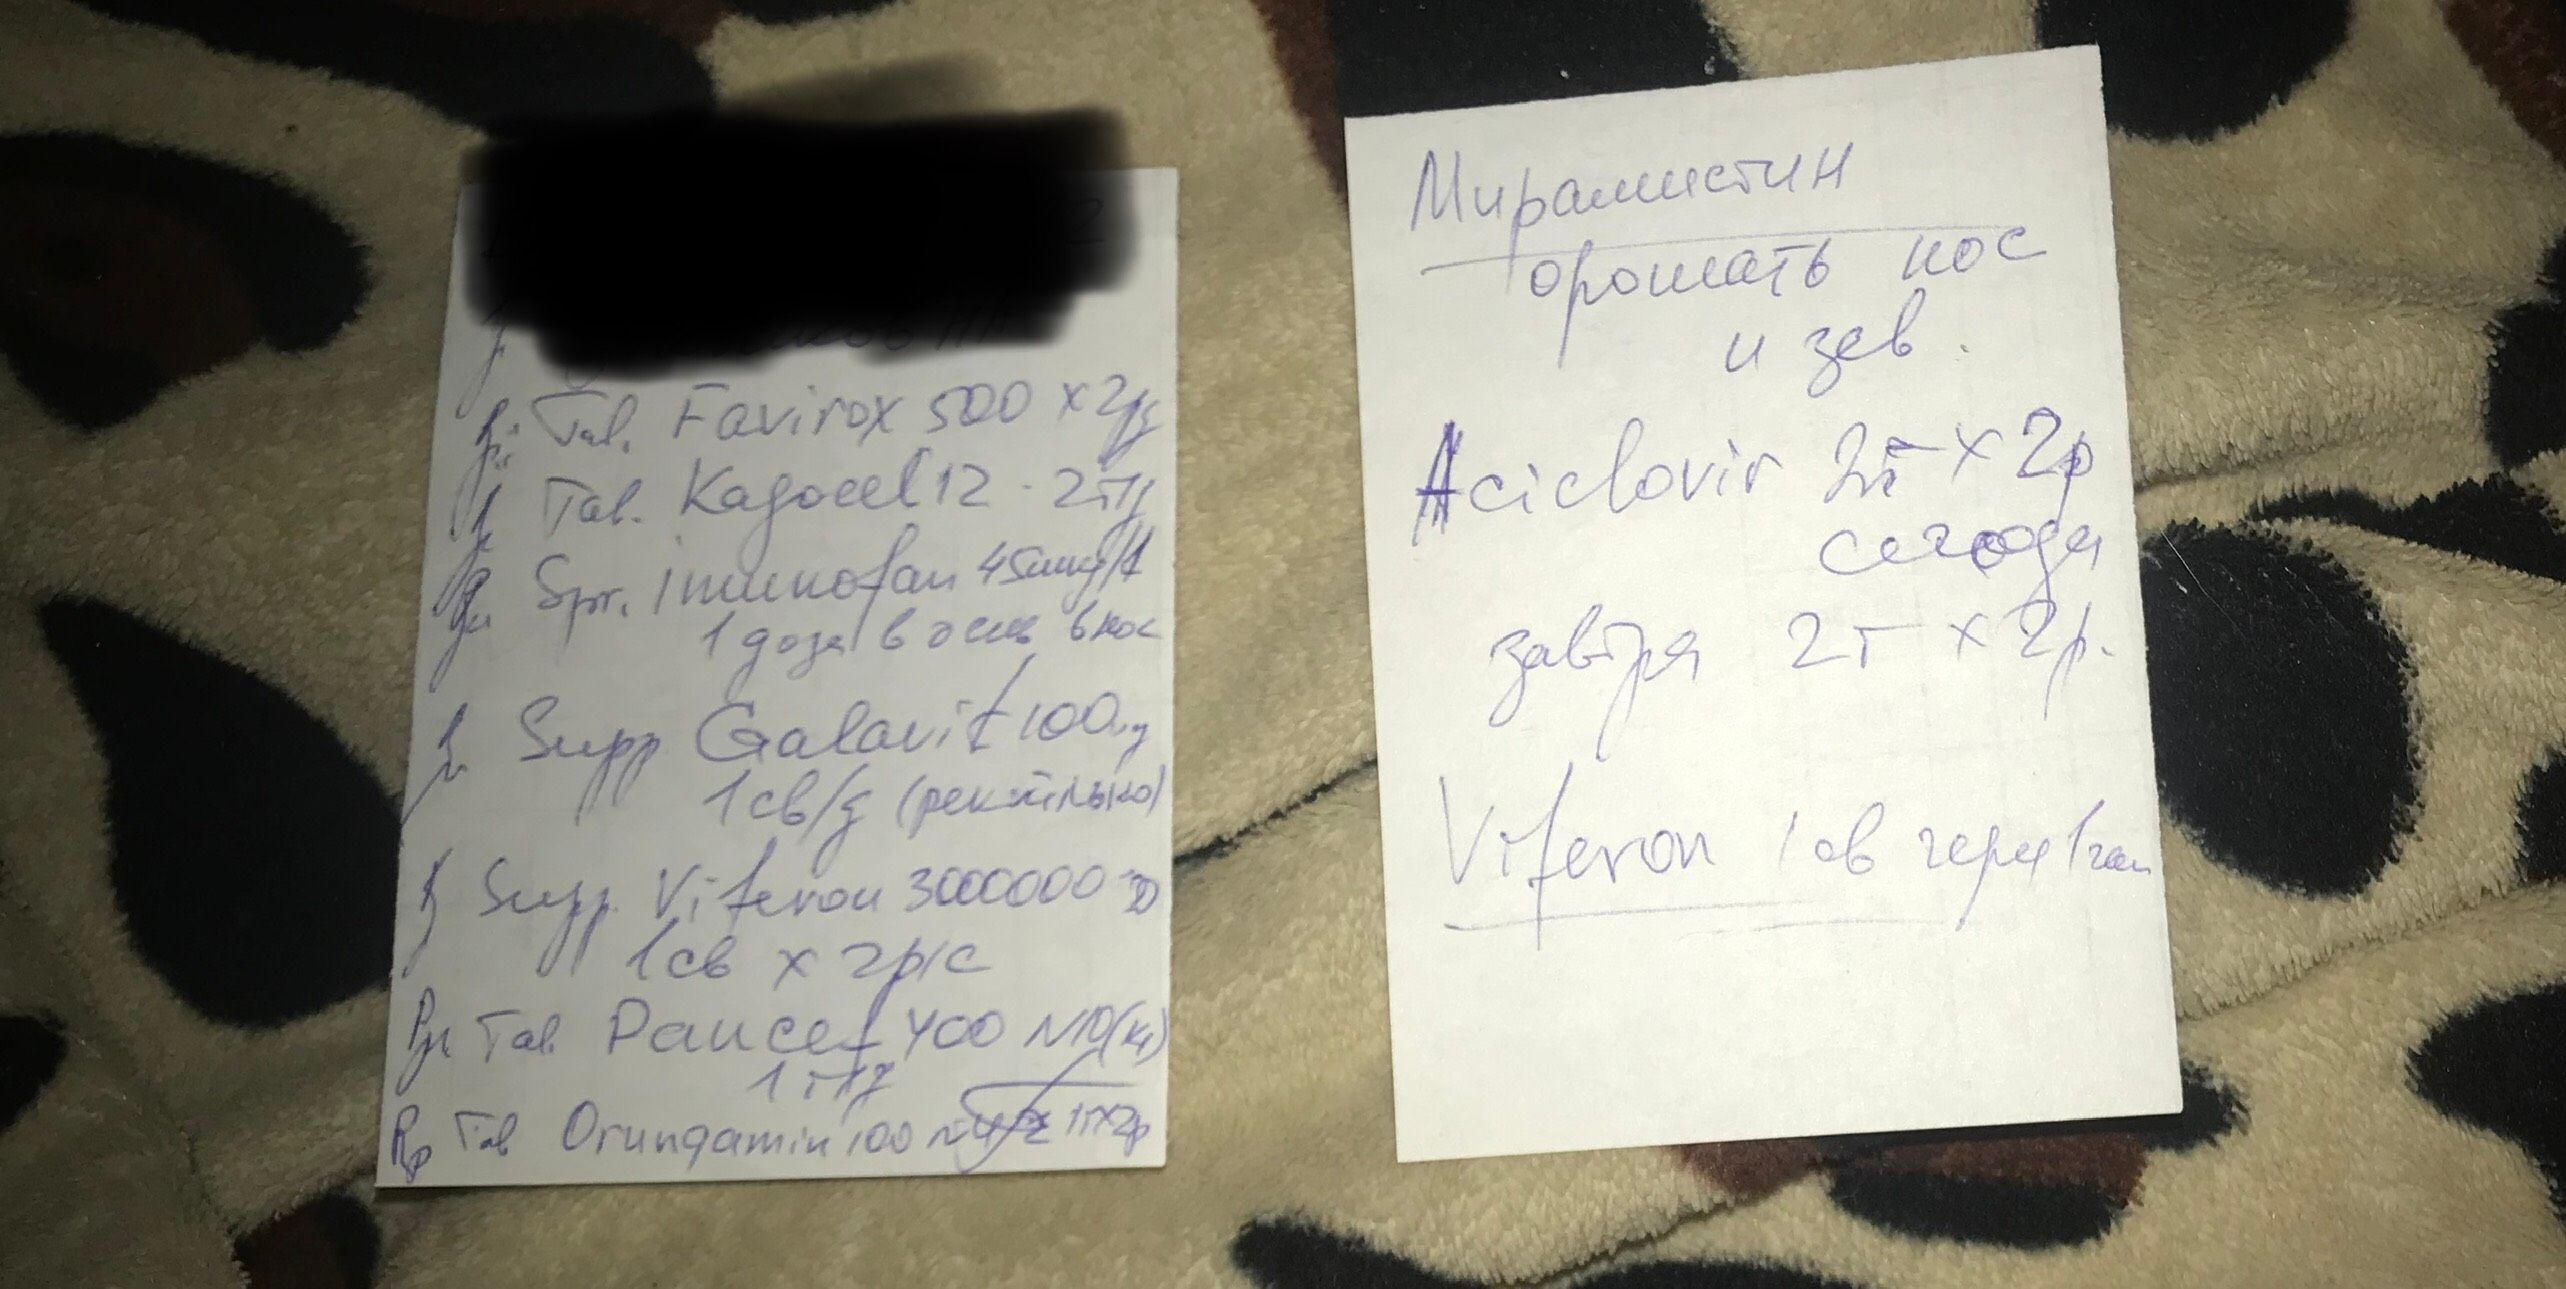 Tab. Favirox 500 x 2р/д
Tab. Kagocel 12 - 2т/д
Spr. imunofan 45mкg/1
1 доза в день в нос
Supp Galavit 100
1 св/д (ректально)
Supp. Viferon 3000000
1 св x 2р/с
Rp Tab. Pancef 400 N10
1 т/д
Rp Tab Orungamin 100 1т x 2р
Мирамистин
орошать нос
и зев.
Aciclovir 2т x 2р
сегодня
завтра 2т x 2р.
Viferon 1 св через 1 час